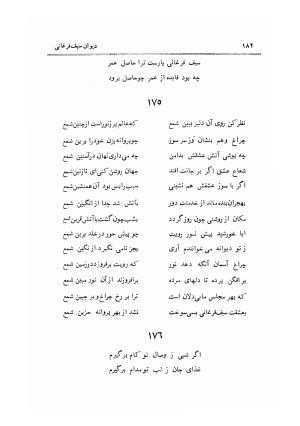 ۱۸۲ دیوان سیف فرغانی
سیف فرغانی یارست ترا حاصل عمر
چه بود فایده از عمر چو حاصل برود
۱۷۵
نظر کن روی آن دلبر ببین شمع که عالم پر ز نور است از چنین شمع
چراغ وهم بنشان وز سر سوز چو پروانه بزن خود را برین شمع
چه پوشی آتش عشقش بدامن چه می داری نهان در آستین شمع
شعاع عشق اگر بر جانت افتد جهان روشن کنی ای نازنین شمع
اگر با سوز عشقش هم نشینی شب را بس بود آن همنشین شمع
بهجران بنده ماند از خدمتت دور بآتش شد جدا از انگبین شمع
مکان از روشنی چون روز گردد بشب چون گشت با آتش قرین شمع
ایا خورشید پیش نور رویت چو پیش حور در خلد برین شمع
ز تو دیوانه می خوانند آری بجز نامی نگیرد از نگین شمع
چراغ آسمان آنگه دهد نور که رویت برفروزد در زمین شمع
برافکن پرده تا دلهای مرده برافروزند از آن نور مبین شمع
که بهر مجلس ما بی دلان است ترا بر رخ چراغ و بر جبین شمع
بعشقت سیف فرغانی بسی سوخت نشد از بهر پروانه حزین شمع
۱۷۶
اگر شبی ز وصال تو کام برگیرم
غذای جان ز لب تو مدام برگیرم